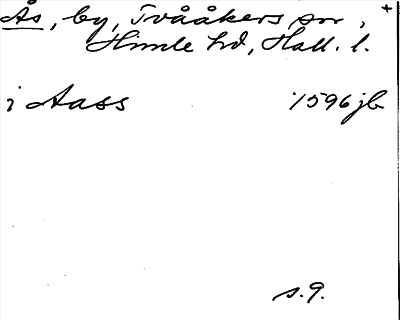 Ås, by, Tvååkers snr, +
Himle hd, Hall. l.
i Aass 1596 jb
s. 9.